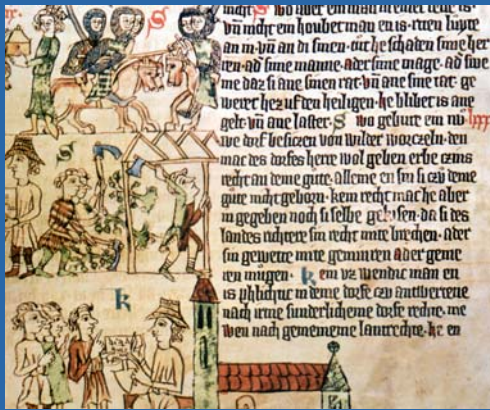 nicht · S wo aber ein man in
vn̄ nicht ein houbetman en is · riten luyte
an in vn̄ an di sinen · he schaden sime her
ren · ad sime manne · ader sime mage · ad
me daz si ane sinen rat · vn̄ ane sine tat · ge
weret her uf den heiligen · he blibet is ane
gelt · vn̄ ane laster · S wo gebure ein nu lxxx
we dorf besiczen von wilder worczeln · den
mac des dorfes herre wol geben erbe czins
recht an deme gute · alleine en sin si czu deme
gute nicht geborn · kein recht mac he aber
in gegeben noch si selbe gekysen · da si des
landes richtere sin recht mite brechen · ader
sin gewette mite geminren ader geme
ren mugen · k ein vz wendic man en
is phlichtic in deme dorfe czu antwertene
nach irme sunderlicheme dorfe rechte · me
wen nach gemeineme lantrechte · he en
S
k